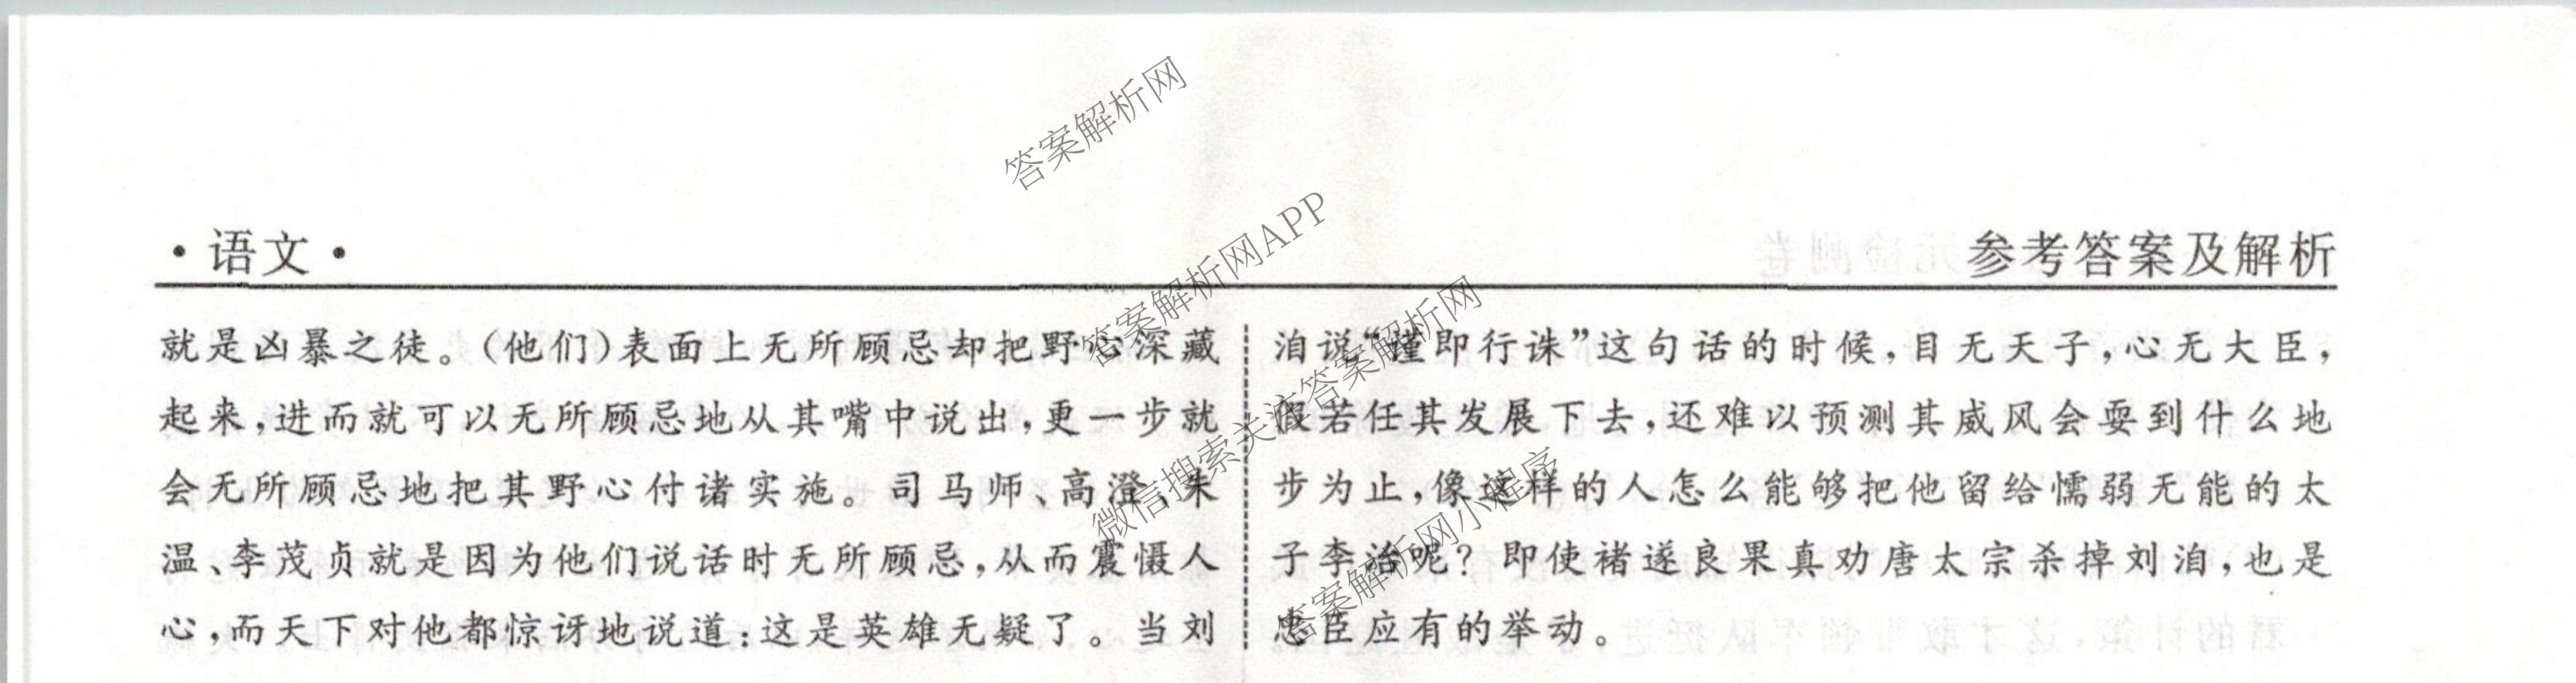 ·语文·
参考答案及解析
就是凶暴之徒。(他们)表面上无所顾忌却把野心深藏
起来,进而就可以无所顾忌地从其嘴中说出,更一步就
会无所顾忌地把其野心付诸实施。司马师、高澄、朱
温、李茂贞就是因为他们说话时无所顾忌,从而震慑人
心,而天下对他都惊讶地说道:这是英雄无疑了。当刘
洎说“谨即行诛”这句话的时候,目无天子,心无大臣,
假若任其发展下去,还难以预测其威风会耍到什么地
步为止,像这样的人怎么能够把他留给懦弱无能的太
子李治呢?即使褚遂良果真劝唐太宗杀掉刘洎,也是
忠臣应有的举动。
答案解析网
答案解析网APP
微信搜索关注答案解析网
答案解析网小程序